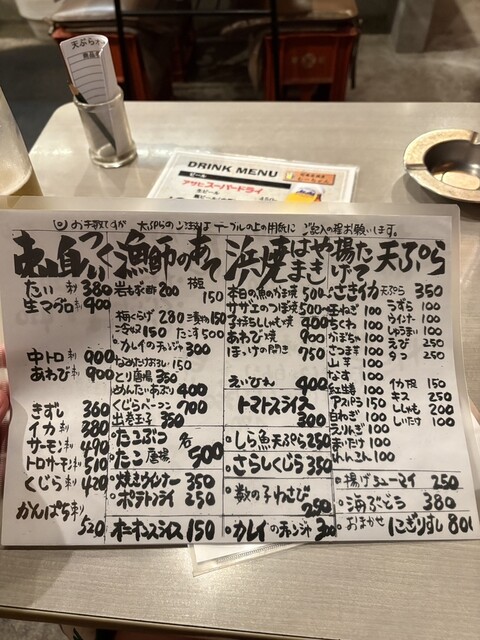 天ぷら
DRINK MENU
ビール
アサヒスーパードライ
生ビール
お手数ですが 天ぷらのご注文は テーブルの上の用紙に ご記入の程お願いします。
つくり
たい刺 380
生マグロ刺 400
中トロ刺 900
あわび刺 900
きずし 360
イカ刺 380
サーモン刺 490
トロサーモン刺 510
くじら刺 420
かんぱち刺 520
漁師のあて
岩もず酢 200
150
梅くらげ 280
漬物 150
冷奴 150
たこす 500
カレイのチャンジャ 300
なめたけおろし 150
とり唐揚 350
めんたいあぶり 400
くじらベーコン 700
出巻玉子 350
たこぶつ
たこ唐揚
各 500
焼きウィンナー 350
ポテトフライ 250
オニオンスライス 150
浜焼 はやまき
本日の魚のかま焼 500〜
サザエのつぼ焼 500〜
子持ちししゃも焼 400
あわび焼 900
ほっけの開き 750
えいひれ 400
トマトスライス 300
しら魚天ぷら 250
さらしくじら 350
数の子わさび 250
カレイのチャンジャ 300
揚げたて 天ぷら
さきイカ 350
玉ねぎ 100
ちくわ 100
かぼちゃ 100
さつま芋 100
山芋 100
なす 100
紅生姜 100
アスパラ 150
白ねぎ 100
えりんぎ 100
まいたけ 100
れんこん 100
うずら 100
ウインナー 100
しゅうまい 100
えび 250
タコ 250
イカ 150
キス 250
ししゃも 200
しいたけ 100
揚げシューマイ 250
海ぶどう 380
おまかせ にぎりすし 801